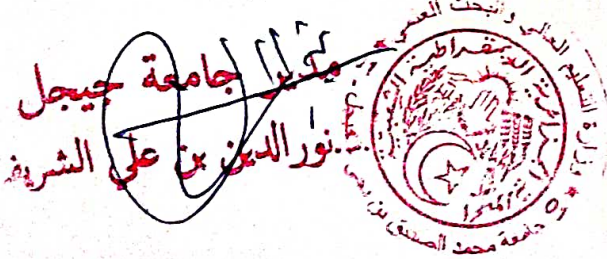 مدير جامعة جيجل
نور الدين بن علي الشريف
وزارة التعليم العالي والبحث العلمي
الجمهورية الجزائرية الديمقراطية الشعبية
جامعة محمد الصديق بن يحي
01